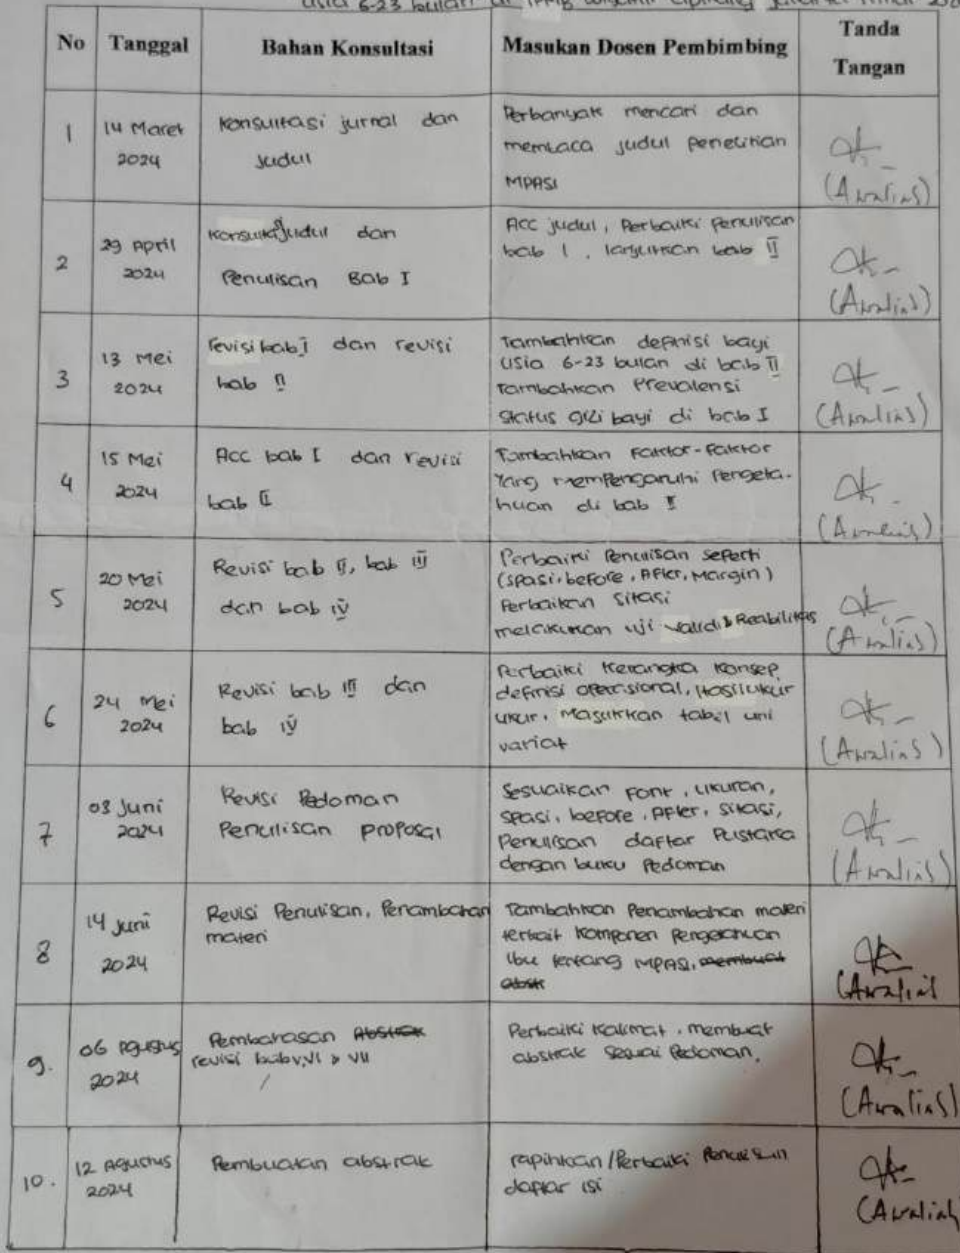 usia 6-23 bulan di
No Tanggal Bahan Konsultasi Masukan Dosen Pembimbing Tanda Tangan
1 14 Maret 2024
Konsultasi jurnal dan
judul
Perbanyak mencari dan
membaca judul penelitian
MPASI
(Awalias)
2 29 April 2024
Konsultasi judul dan
Penulisan Bab I
Acc judul, Perbaiki Penulisan
bab I, lanjutkan bab II
(Awalias)
3 13 Mei 2024
revisi bab I dan revisi
bab II
Tambahkan definisi bayi
usia 6-23 bulan di bab II
Tambahkan Prevalensi
Status gizi bayi di bab I
(Awalias)
4 15 Mei 2024
Acc bab I dan revisi
bab II
Tambahkan Faktor-Faktor
yang mempengaruhi Pengeta-
huan di bab II
(Awalias)
5 20 Mei 2024
Revisi bab II, bab III
dan bab IV
Perbaiki Penulisan seperti
(spasi, before, After, Margin)
Perbaikan sitasi
melakukan uji valid & Reabilitas
(Awalias)
6 24 Mei 2024
Revisi bab III dan
bab IV
Perbaiki kerangka konsep,
definisi operasional, Hasil ukur
ukur. Masukkan tabel uni
variat
(Awalias)
7 03 Juni 2024
Revisi Pedoman
Penulisan proposal
Sesuaikan Font, ukuran,
spasi, before, After, sitasi,
Penulisan daftar Pustaka
dengan buku Pedoman
(Awalias)
8 14 Juni 2024
Revisi Penulisan, Penambahan
materi
Tambahkan Penambahan materi
terkait komponen Pengetahuan
ibu tentang MPASI, membuat
abstk
(Awalias
9. 06 Agustus 2024
Pembahasan Abstrak
revisi bab V, VI & VII
Perbaiki kalimat, membuat
abstrak sesuai Pedoman.
(Awalias)
10. 12 Agustus 2024
Pembuatan abstrak
rapihkan/Perbaiki Penulisan
daftar isi
(Awalias)